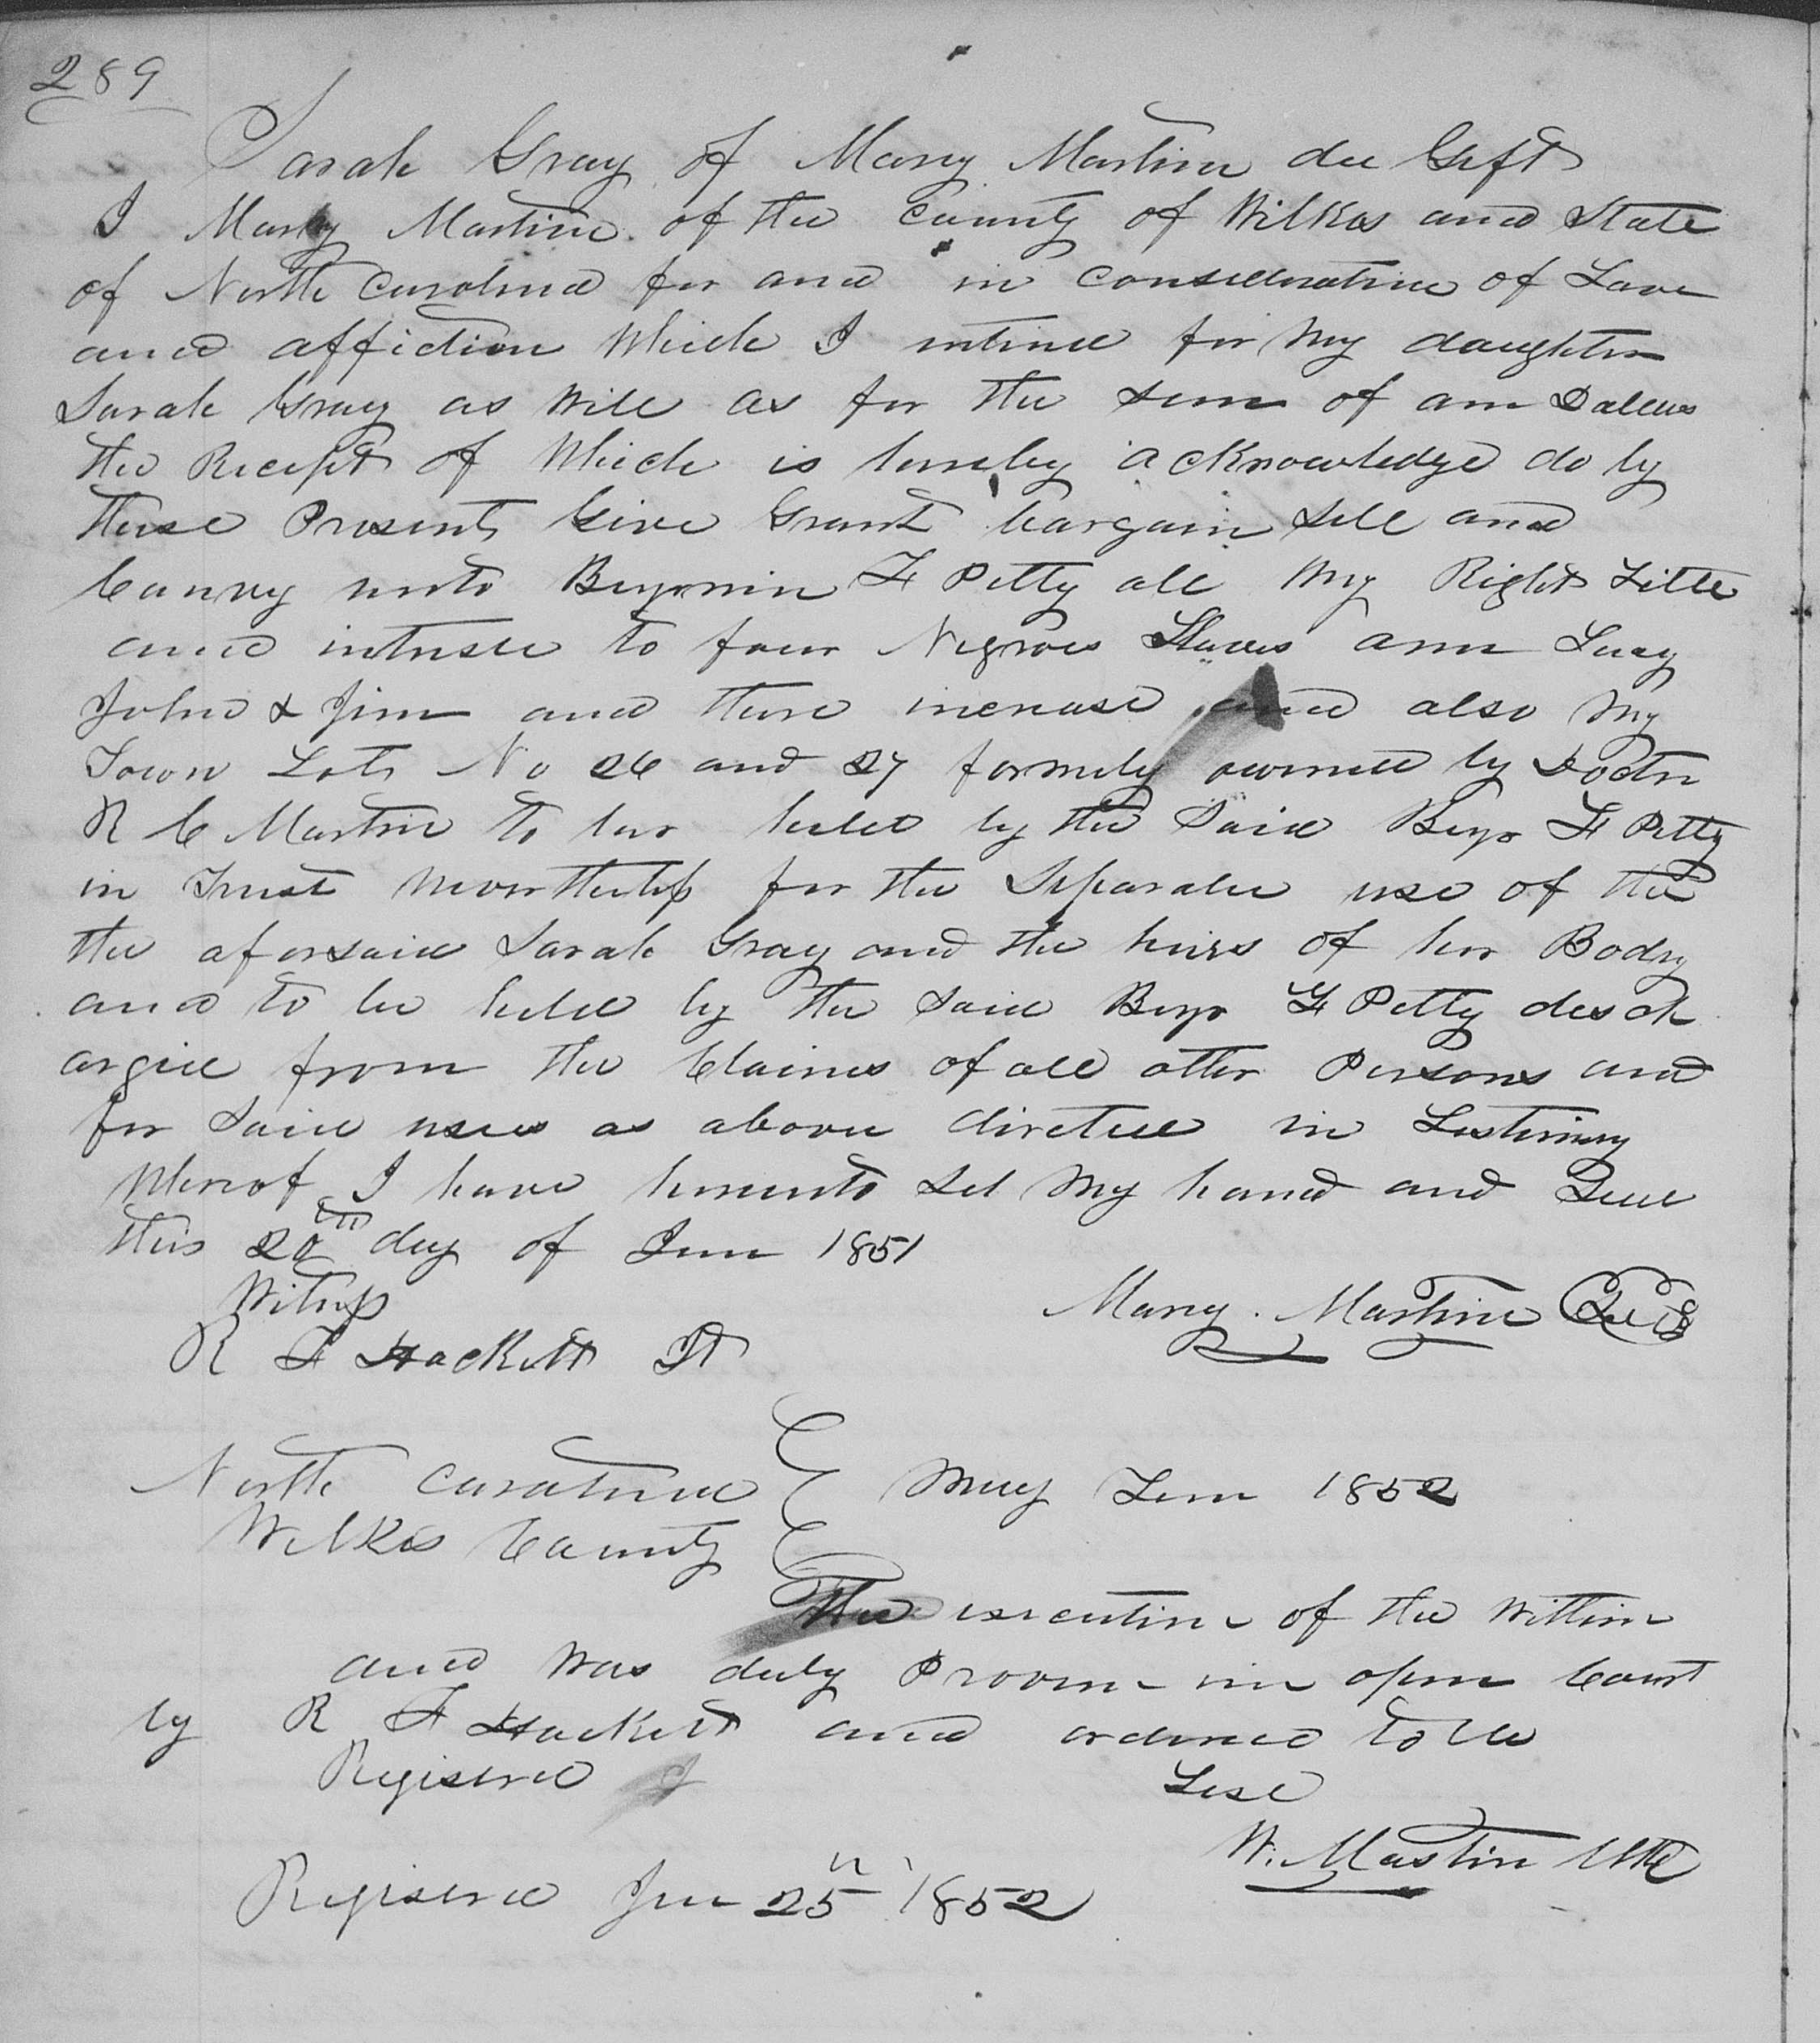 289
Sarah Gray of Mary Martin de Gift
I Mary Martin of the County of Wilkes and State
of North Carolina for and in consideration of Love
and affiction which I intind for my daughter
Sarah Gray as will as for the sum of one Dallars
the Recept of which is hereby acknowledge do by
these Presents Give Grant bargain sell and
Convey unto Benjamin F Petty all my Right Title
and intrust to four Negroes Slaves Ann Lucy
John & Jim and there increase and also my
Town Lots No 26 and 27 formily owned by Doctr
R C Martin to be held by the said Benj F Petty
in Trust neverthelefs for the Separate use of the
the aforsaid Sarah Gray and the heirs of her Body
and to be held by the said Benj F Petty disch
argid from the Claims of all other Persons and
for said uses as above dircted in Testimony
whereof I have hereunto set my hand and Seal
this 20th day of June 1851
Witnefs
Mary Martin Seal
R F Hackett Jt
North Carolina May Term 1852
Wilkes County
The execution of the within
and was duly Proven in open Court
by R F Hackett and ordered to be
Registered
Test
W. Mastin Clk
Registered June 25th 1852